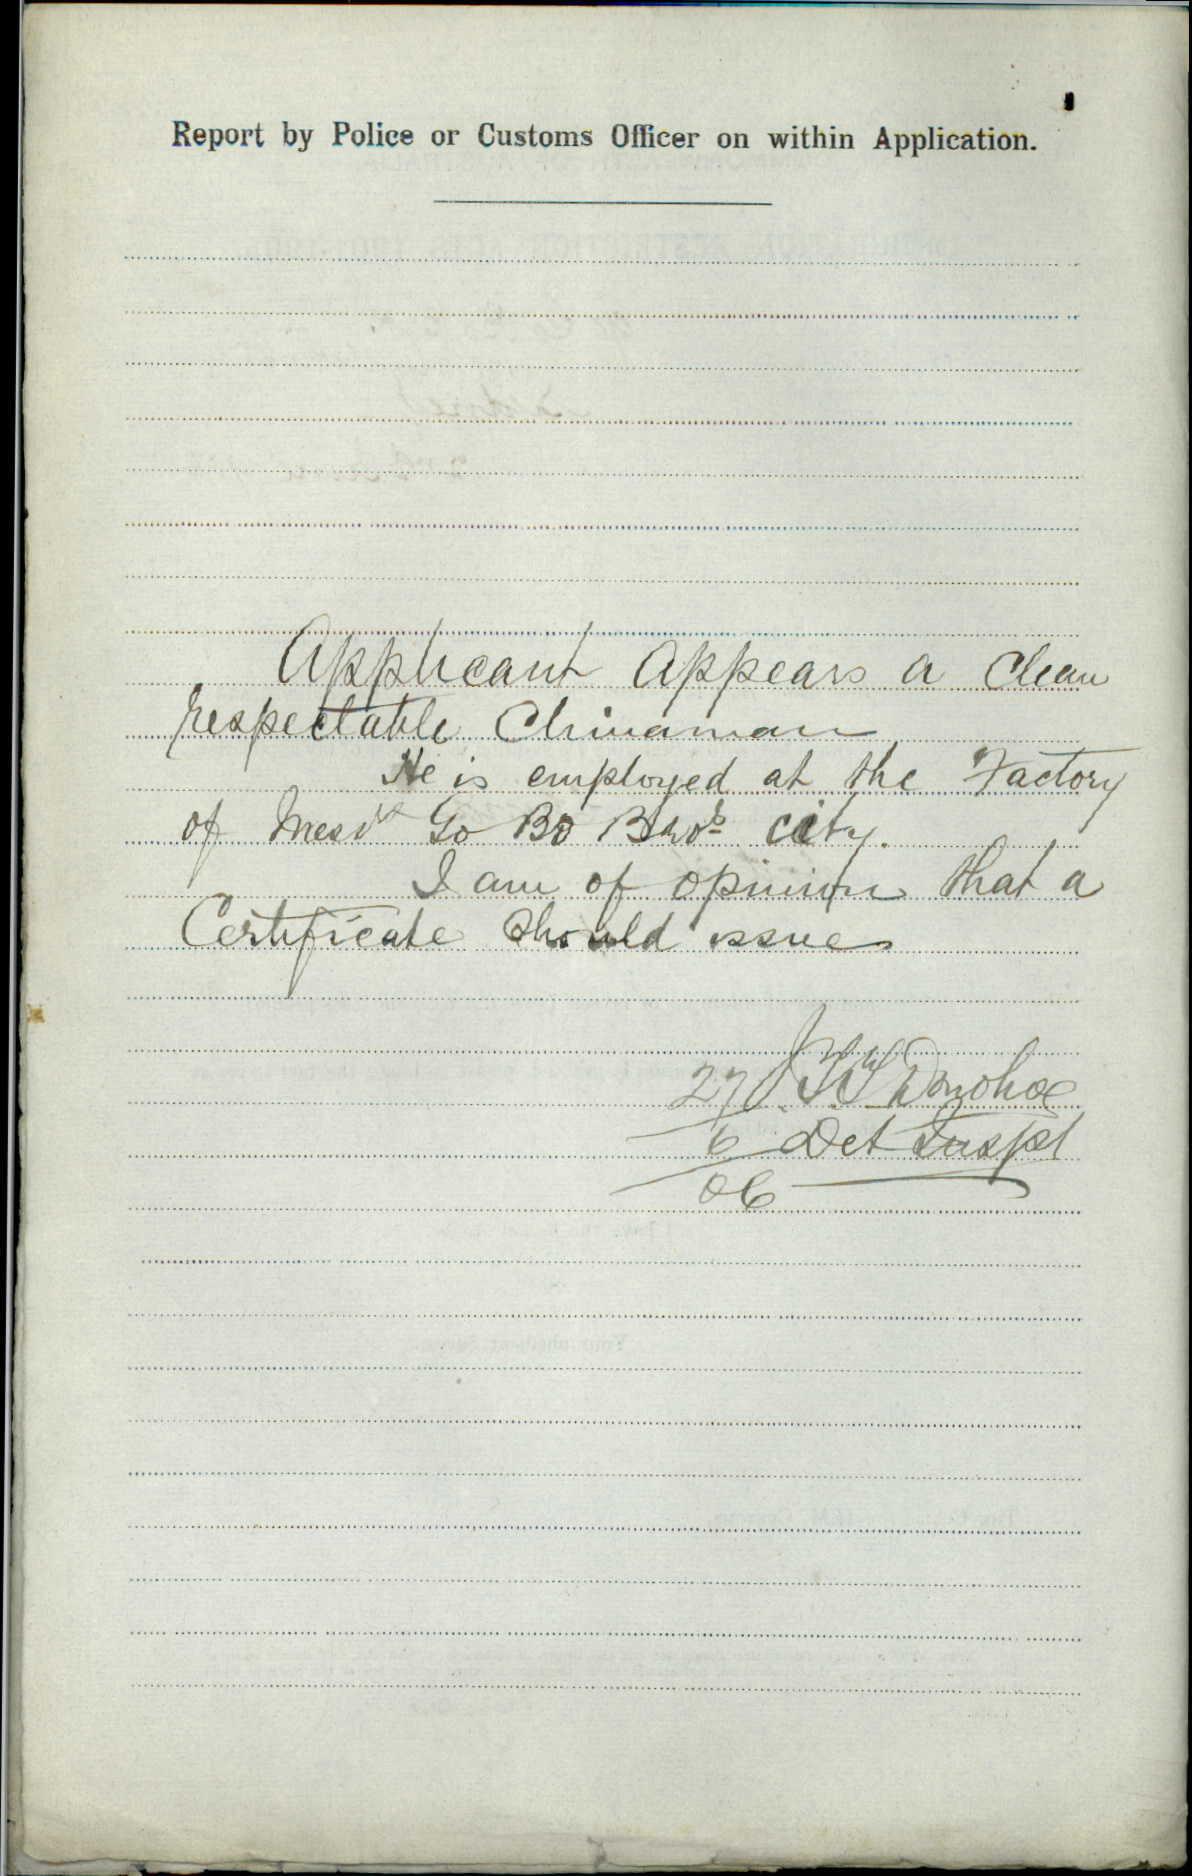 Report by Police or Customs Officer on within Application.
Applicant Appears a Clean
respectable Chinaman
He is employed at the Factory
of Messrs Go Bo Bros City.
I am of opinion that a
Certificate Should issue
27 Donohoe
6 Det Inspt
06